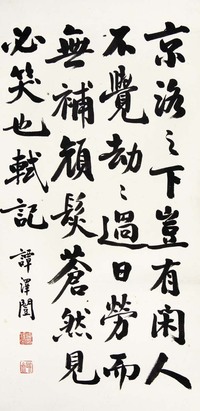 京洛之下豈有閑人
不覺劫〻過日勞而
無補顏髮蒼然見
必笑也軾記
譚澤闓